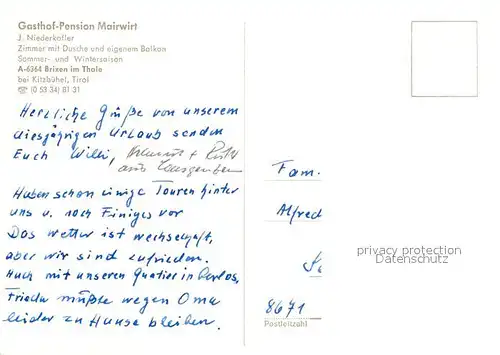 Gasthof-Pension Mairwirt
J. Niederkofler
Zimmer mit Dusche und eigenem Balkon
Sommer- und Wintersaison
A-6364 Brixen im Thale
bei Kitzbühel, Tirol
☎ (0 53 34) 81 31
Herzliche Grüße von unserem
diesjährigen Urlaub senden
Euch Willi, + 
aus
Haben schon einige Touren hinter
uns u. noch Einiges vor
Das Wetter ist wechselhaft,
aber wir sind zufrieden.
Auch mit unseren Quatier
Frieda müßte wegen Oma
leider zu Hause bleiben.
Fam.
Alfred
privacy protection
Datenschutz
8671
Postleitzahl